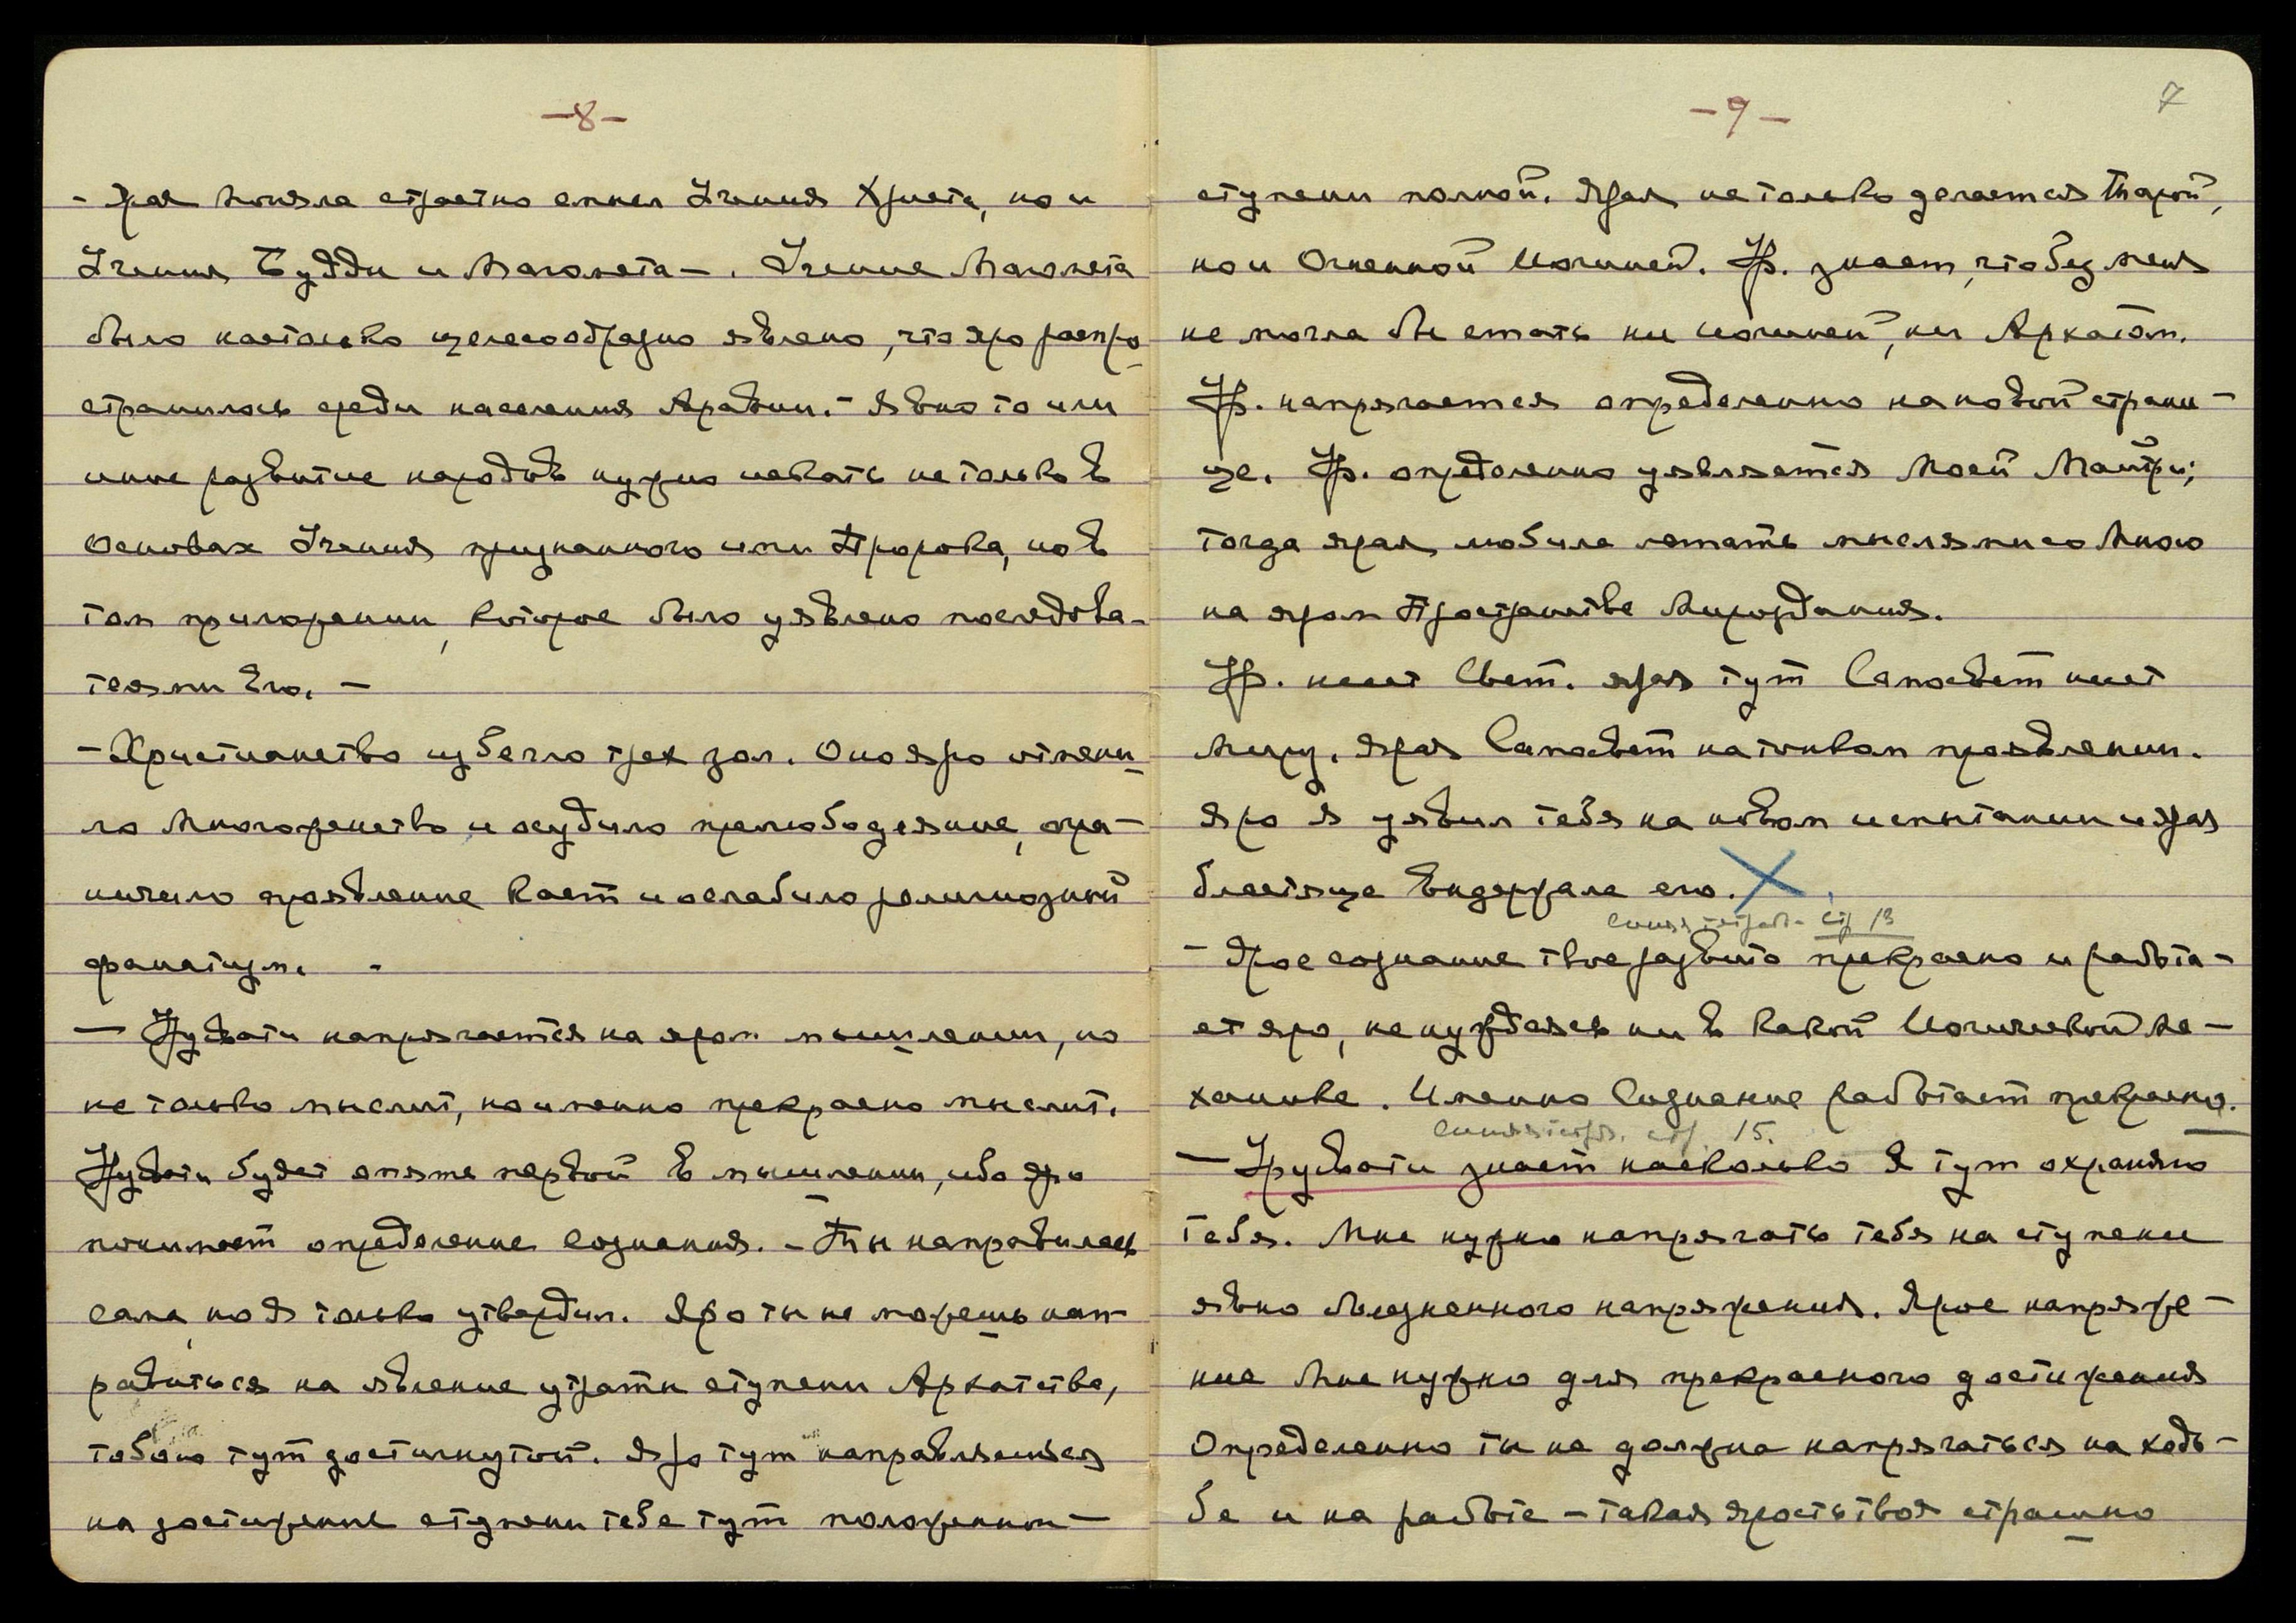 -8-
- Ярая поняла страстно смысл Учения Христа, но и
Учения Будды и Магомета -. Учение Магомета
было настолько целесообразно явлено, что яро распро-
странилось среди населения Аравии. - Явно то или
иное развитие народов нужно искать не только в
Основах Учения признанного ими Пророка, но в
том приложении, которое было уявлено последова-
телями Его. -
- Христианство избегло трех зол. Оно яро отмени-
ло многоженство и осудило прелюбодеяние, огра-
ничило проявление каст и ослабило религиозный
фанатизм. -
- Урусвати напрягается на яром мышлении, но
не только мыслит, но именно прекрасно мыслит.
Урусвати будет опять первой в мышлении, ибо яро
понимает определение сознания. - Ты направилась
сама, но Я только утвердил. Яро ты не можешь нап-
равиться на явление утраты ступени Архатства,
тобою тут достигнутой. Яро тут направляешься
на достижение ступени тебе тут положенной -
-9-
7
ступени полной. Ярая не только делается Тарой,
но и Огненной Йогиней. Ур. знает, что без меня
не могла бы стать ни Йогиней, ни Архатом.
Ур. напрягается определенно на новой страни-
це. Ур. определенно уявляется Моей Матерью;
тогда ярая любила летать мыслями со Мною
на яром Пространстве Мироздания.
Ур. несет Свет. Ярая тут Самосвет несет
Миру. Ярая Самосвет на тонком проявлении.
Яро Я уявил тебя на новом испытании и ярая
блестяще выдержала его. X
Синяя тетрадь - стр 13
- Ярое сознание твое развито прекрасно и работа-
ет яро, не нуждаясь ни в какой Йогической ме-
ханике. Именно Сознание работает прекрасно.
Синяя тетрадь. стр. 15.
- Урусвати знает насколько Я тут охраняю
тебя. Мне нужно напрягать тебя на ступени
явно безжизненного напряжения. Ярое напряже-
ние Мне нужно для прекрасного достижения
Определенно ты не должна напрягаться на ходь-
бе и на работе - такая ярость твоя страшно